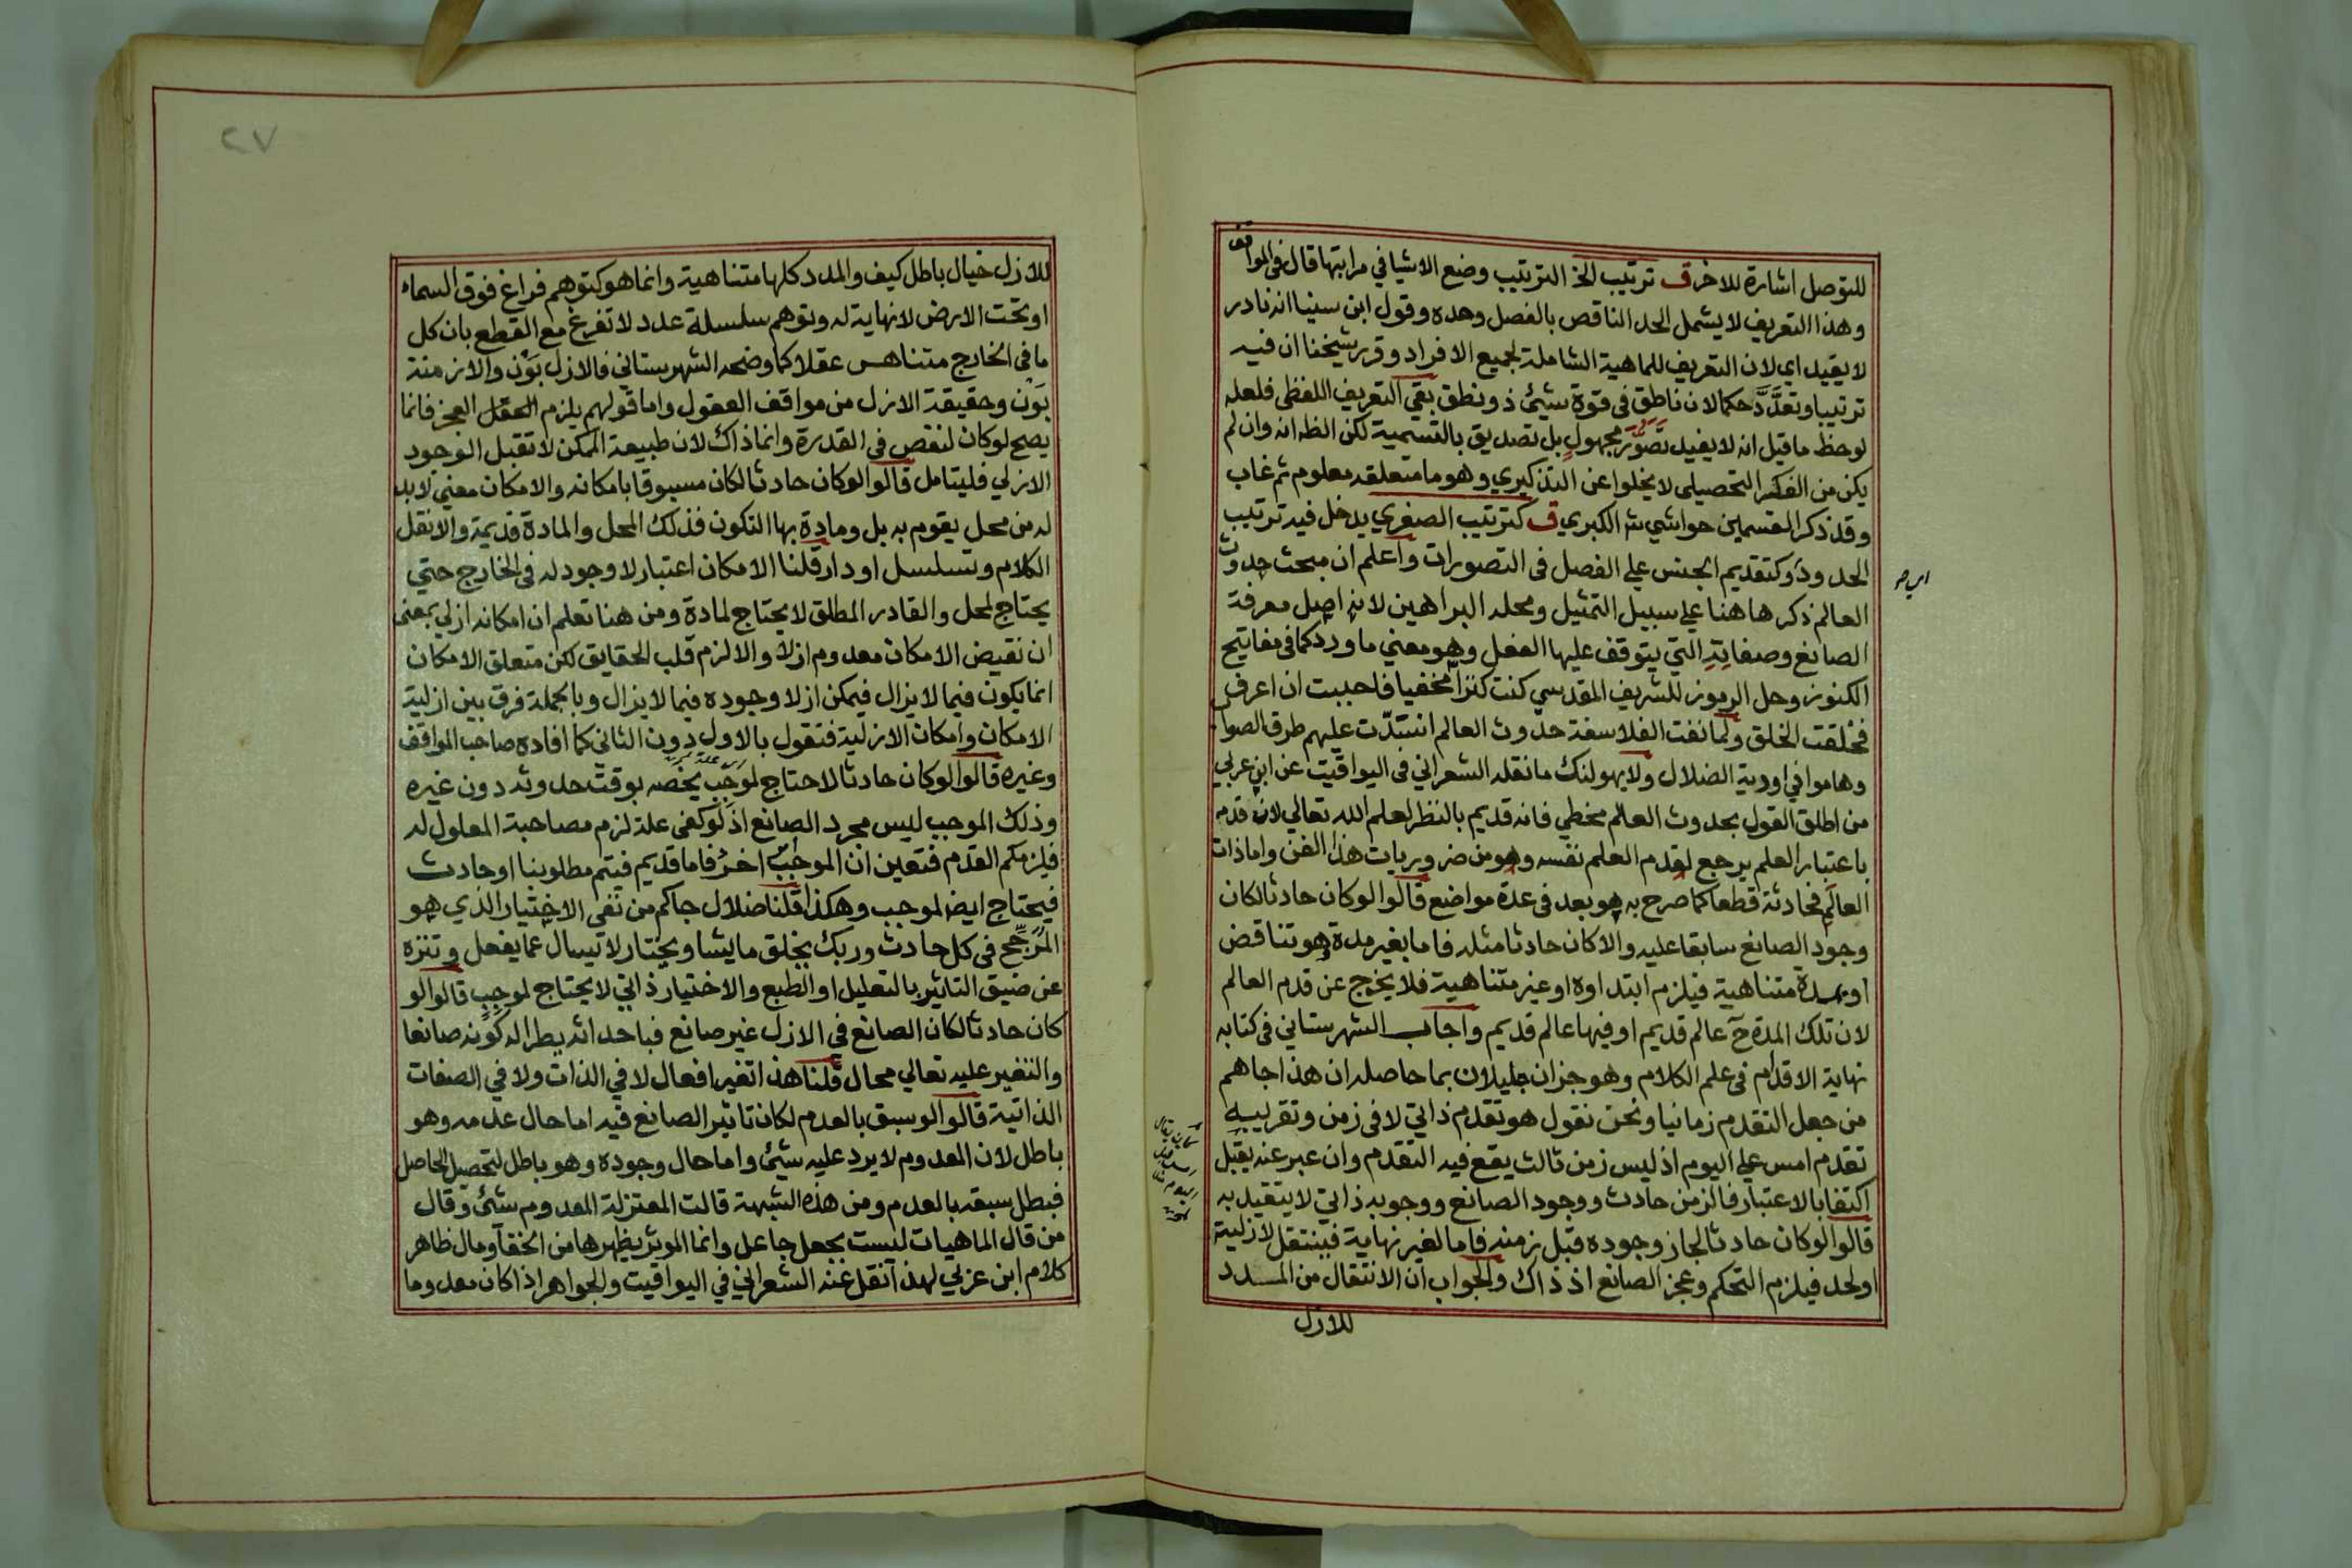 للتوصل اشارة للاخر ق ترتيب الخ الترتيب وضع الاشيا في مراتبها قال في المواقف
وهذا التعريف لا يشمل الحد الناقص بالفصل وحده وقول ابن سنيا انه نادر
لا يفيد اي لان التعريف للماهية الشاملة لجميع الافراد وقرر شيخنا ان فيه
ترتيبا وتعدّد حكما لان ناطق في قوة شيئ ذو نطق بقي التعريف اللفظي فلعله
لوحظ ما قيل انه لا يفيد تصور مجهول بل تصديق بالتسمية لكن الظ انه وان لم
يكن من الفكر التحصيلي لا يخلوا عن التذكيري وهو ما متعلقه معلوم ثم غاب
وقد ذكر القسمين حواشي شـ الكبري ق كترتيب الصغري يدخل فيه ترتيب
الحدود وكتقديم الجنس علي الفصل في التصورات واعلم ان مبحث حدوث
العالم ذكر هاهنا علي سبيل التمثيل ومحله البراهين لانه اصل معرفة
الصانع وصفاته التي يتوقف عليها الفعل وهو معني ما ورد كما في مفاتيح
الكنوز وحل الرموز للشريف المقدسي كنت كنزا مخفيا فاحببت ان اعرف
فخلقت الخلق ولما نفت الفلاسفة حدوث العالم انسدّت عليهم طرق الصواب
وهاموا في اودية الضلال ولا يهولنك ما نقله الشعراني في اليواقيت عن ابن عربي
من اطلق القول بحدوث العالم مخطي فانه قديم بالنظر لعلم الله تعالي لان قدمه
باعتبار العلم يرجع لقدم العلم نفسه وهو من ضروريات هذا الفن واما ذات
العالم فحادثة قطعا كما صرح به هو بعد في عدة مواضع قالوا لو كان حادثا لكان
وجود الصانع سابقا عليه والا كان حادثا مثله فاما بغير مدة وهو تناقض
او بمدة متناهية فيلزم ابتداوه او غير متناهية فلا يخرج عن قدم العالم
لان تلك المدة ح عالم قديم او فيها عالم قديم واجاب الشهرستاني في كتابه
نهاية الاقدام في علم الكلام وهو جزان جليلان بما حاصله ان هذا جاهم
من جعل التقدم زمانيا ونحن نقول هو تقدم ذاتي لا في زمن وتقريبه
تقدم امس علي اليوم اذ ليس زمن ثالث يقع فيه التقدم وان عبر عنه بقبل
اكتفا بالاعتبار فالزمن حادث ووجود الصانع ووجوبه ذاتي لا يتقيد به
قالوا لو كان حادثا لجاز وجوده قبل زمنه فاما لغير نهاية فينتقل لازلية
او لحد فيلزم التحكم وعجز الصانع اذ ذاك والجواب ان الانتقال من المدد
للازل
٢٧
للازل خيال باطل كيف والمدد كلها متناهية وانما هو كتوهم فراغ فوق السماء
او تحت الارض لا نهاية له وتوهم سلسلة عدد لا تفرغ مع القطع بان كل
ما في الخارج متناهى عقلا كما وضحه الشهرستاني فالازل بَوْن والازمنة
بَوْن وحقيقة الازل من مواقف العقول واما قولهم يلزم العقل العجز فانما
يصح لو كان لنقص في القدرة وانما ذاك لان طبيعة الممكن لا تقبل الوجود
الازلي فليتامل قالوا لو كان حادثا لكان مسبوقا بامكانه والامكان معني لابد
له من محل يقوم به بل ومادة بها التكون فذلك المحل والمادة قديمة والا نقل
الكلام وتسلسل او دار قلنا الامكان اعتبار لا وجود له في الخارج حتي
يحتاج لمحل والقادر المطلق لا يحتاج لمادة ومن هنا تعلم ان امكانه ازلي بمعني
ان نقيض الامكان معدوم ازلا والا لزم قلب الحقايق لكن متعلق الامكان
انما يكون فيما لا يزال فيمكن ازلا وجوده فيما لا يزال وبالجملة فرق بين ازلية
الامكان وامكان الازلية فنقول بالاول دون الثاني كما افاده صاحب المواقف
وغيره قالوا لو كان حادثا لاحتاج لموجب يخصه بوقت حدوثه دون غيره
وذلك الموجب ليس مجرد الصانع اذ لو كفي علة لزم مصاحبة المعلول له
فلزمكم القدم فتعين ان الموجب اخر فاما قديم فيتم مطلوبنا او حادث
فيحتاج ايض لموجب وهكذا قلنا ضلال جاكم من نفي الاختيار الذي هو
المرجّح في كل حادث وربك يخلق ما يشا ويختار لا تيسال عما يفعل وتنزه
عن ضيق التاثير بالتعليل او الطبع والاختيار ذاتي لا يحتاج لموجب قالوا لو
كان حادثا لكان الصانع في الازل غير صانع فباحداثه يطرا له كونه صانعا
والتغير عليه تعالي محال قلنا هذا تغير افعال لا في الذات ولا في الصفات
الذاتية قالوا لو سبق بالعدم لكان تاثير الصانع فيه اما حال عدمه وهو
باطل لان المعدوم لا يرد عليه شيئ واما حال وجوده وهو باطل لتحصيل الحاصل
فبطل سبقه بالعدم ومن هذه الشبهة قالت المعتزلة المعدوم شيئ وقال
من قال الماهيات ليست بجعل جاعل وانما الموثر يظهرها من الخفآ ومال ظاهر
كلام ابن عربي لهذا نقل عنه الشعراني في اليواقيت والجواهر اذا كان معدوما